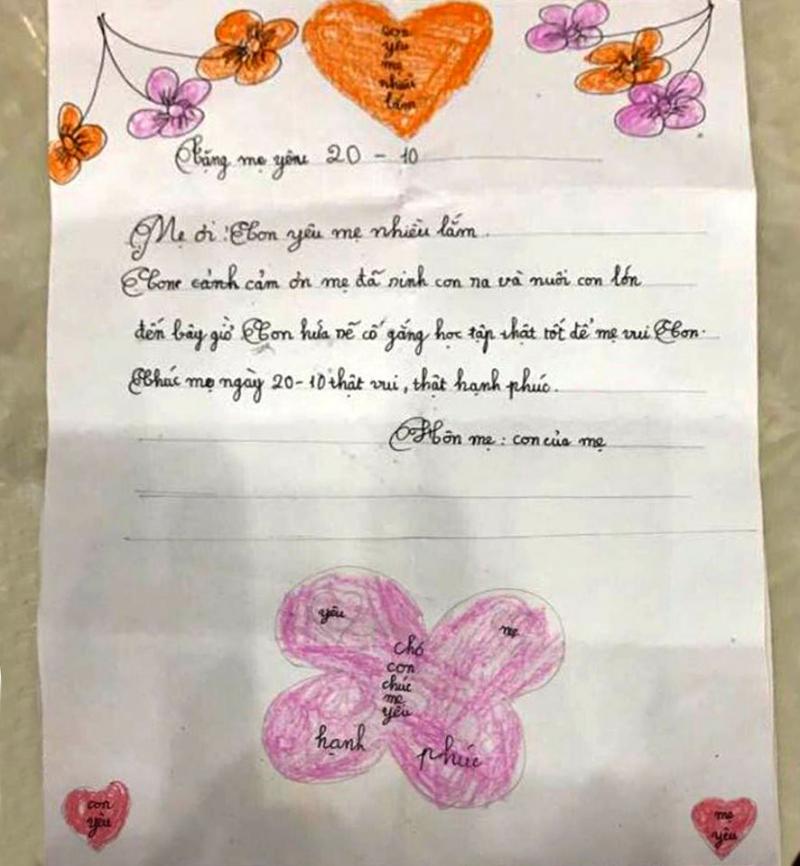 con
yêu
mẹ
nhiều
lắm
Tặng mẹ yêu 20 - 10
Mẹ ơi! Con yêu mẹ nhiều lắm.
cảm ơn mẹ đã sinh con ra và nuôi con lớn
đến bây giờ Con hứa sẽ cố gắng học tập thật tốt để mẹ vui Con.
Chúc mẹ ngày 20-10 thật vui, thật hạnh phúc.
Hôn mẹ: con của mẹ
yêu
mẹ
chó
con
chúc
mẹ
yêu
hạnh phúc
con
yêu
mẹ
yêu